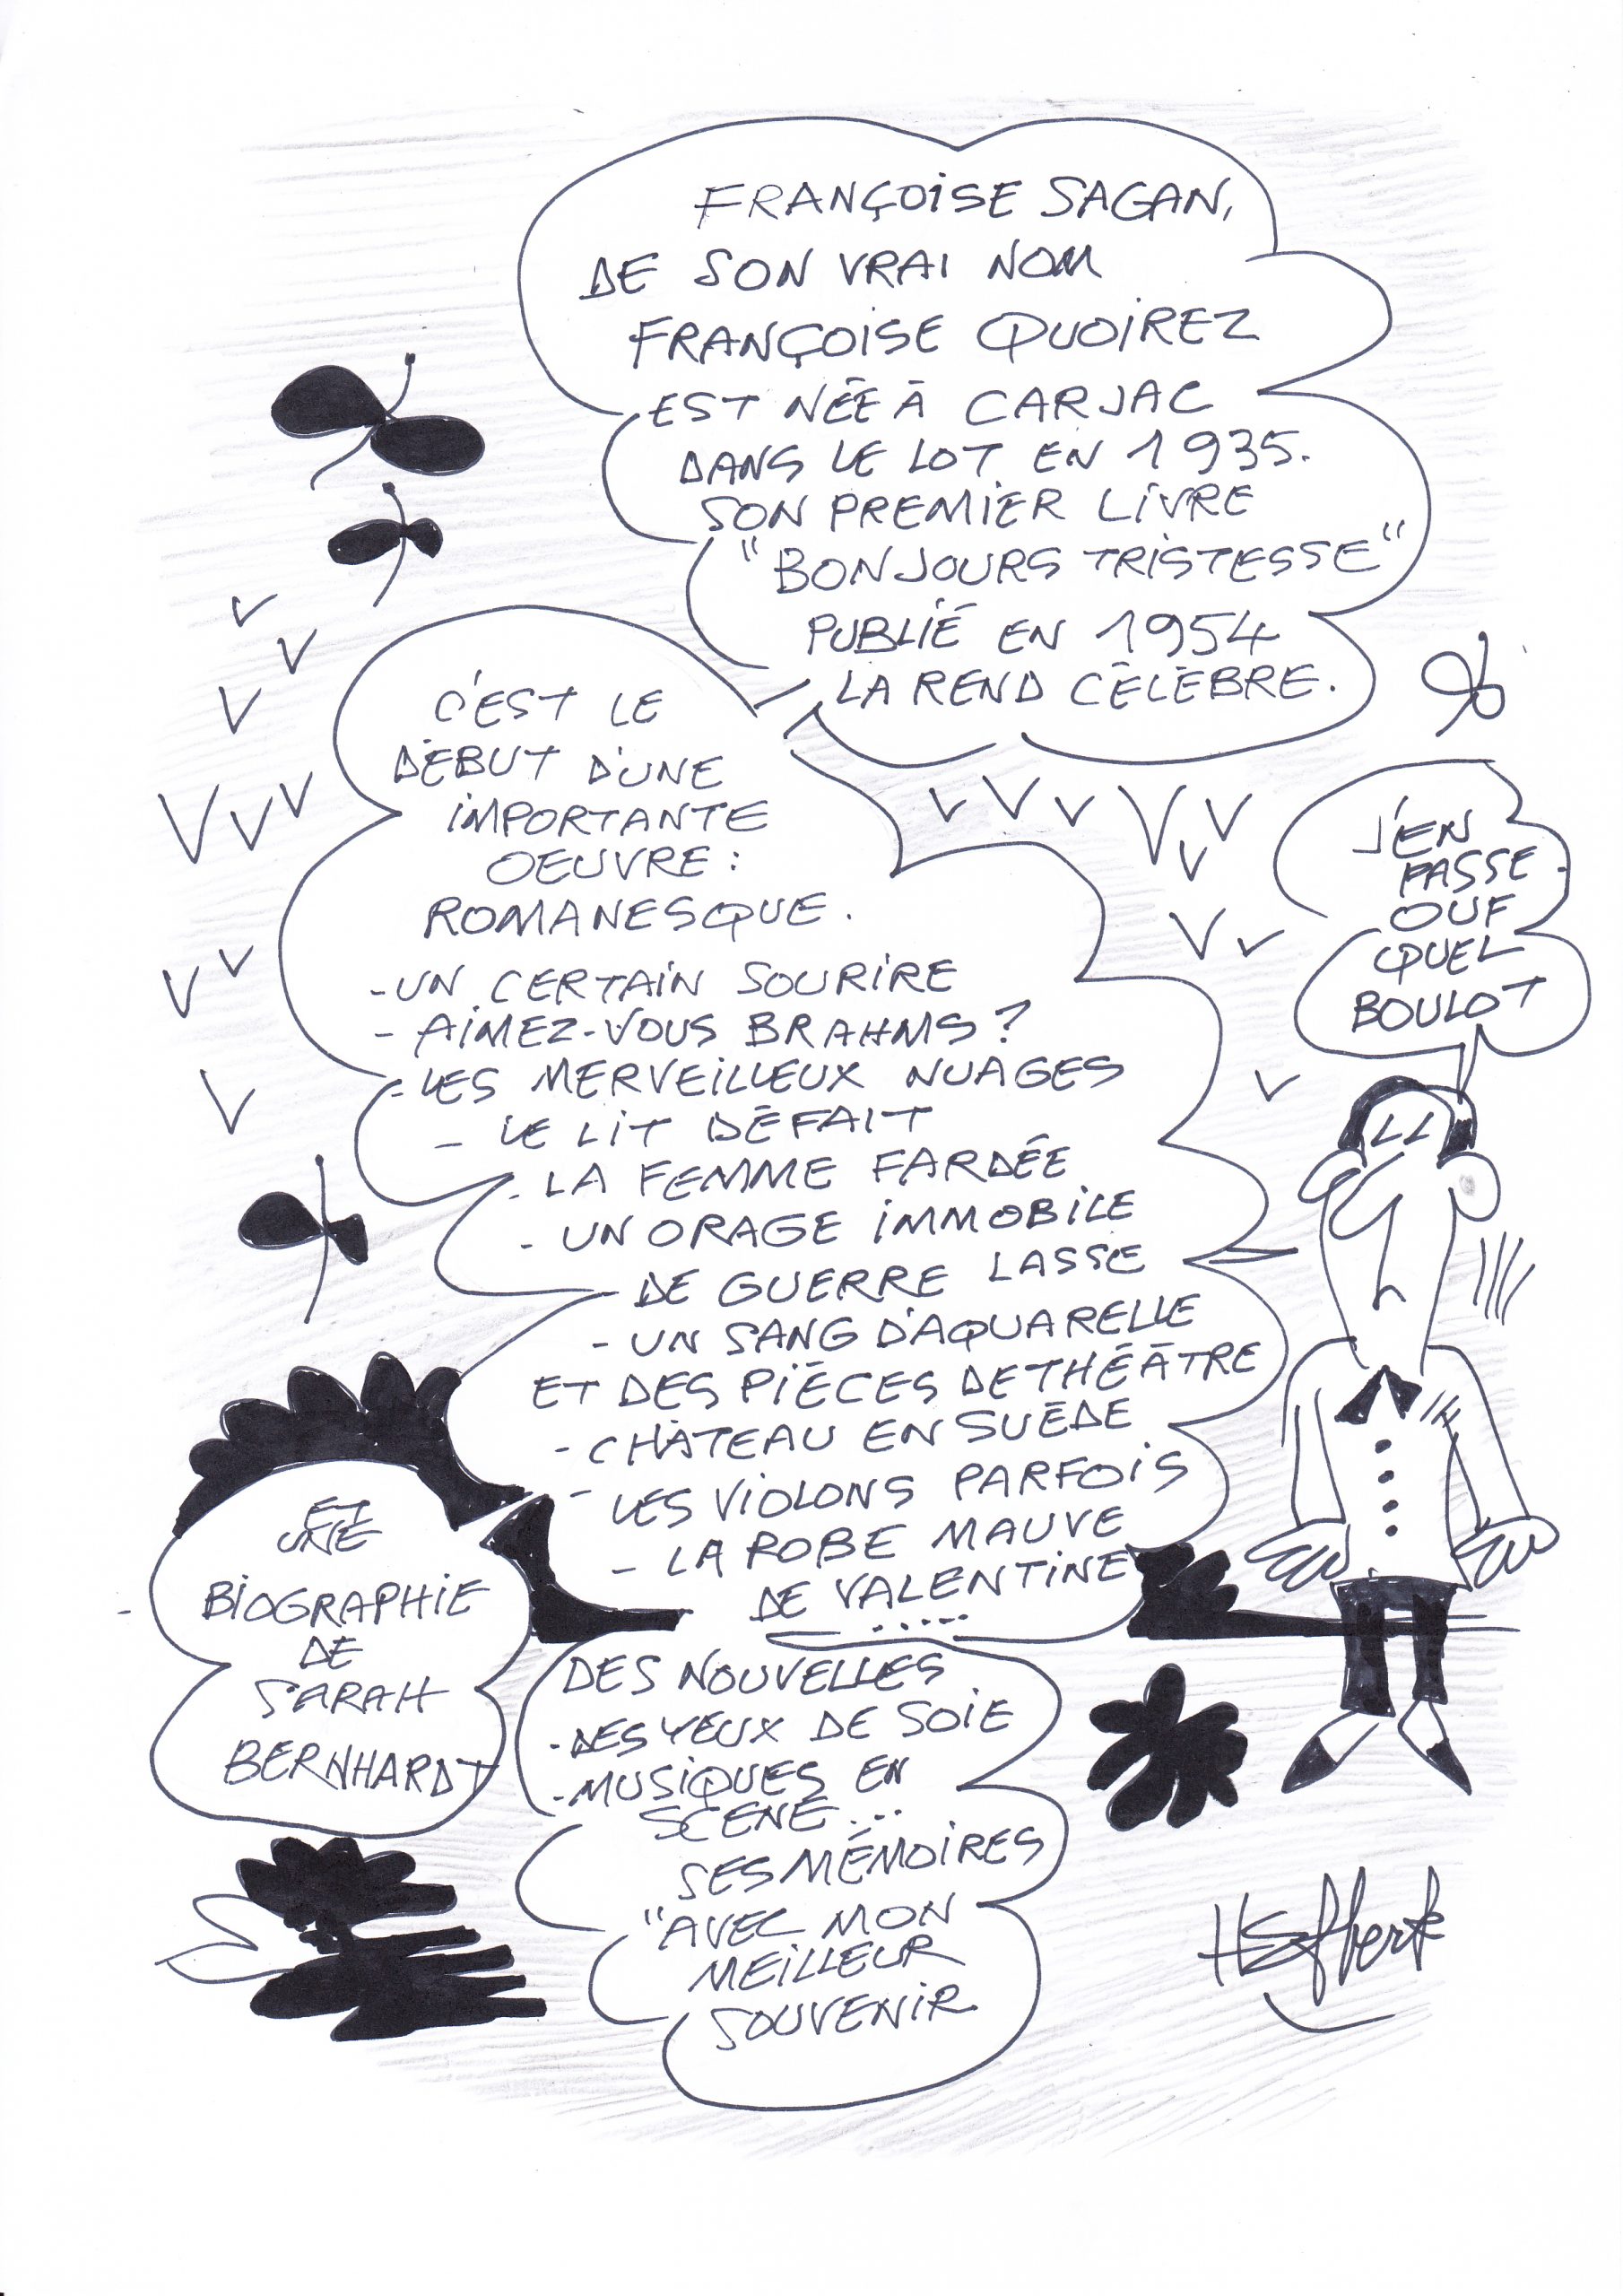 FRANÇOISE SAGAN,
DE SON VRAI NOM
FRANÇOISE QUOIREZ
EST NÉE À CARJAC
DANS LE LOT EN 1935.
SON PREMIER LIVRE
"BONJOURS TRISTESSE"
PUBLIÉ EN 1954
LA REND CÉLÈBRE.
C'EST LE
DÉBUT D'UNE
IMPORTANTE
OEUVRE :
ROMANESQUE.
-UN CERTAIN SOURIRE
- AIMEZ-VOUS BRAHMS ?
-LES MERVEILLEUX NUAGES
- LE LIT DÉFAIT
- LA FEMME FARDÉE
- UN ORAGE IMMOBILE
DE GUERRE LASSE
- UN SANG D'AQUARELLE
ET DES PIÈCES DE THÉÂTRE
- CHÂTEAU EN SUÈDE
- LES VIOLONS PARFOIS
- LA ROBE MAUVE
DE VALENTINE
.....
J'EN
PASSE
OUF
QUEL
BOULOT
DES NOUVELLES
-DES YEUX DE SOIE
-MUSIQUES EN
SCÈNE...
SES MÉMOIRES
"AVEC MON
MEILLEUR
SOUVENIR
ET
UNE
BIOGRAPHIE
DE
SARAH
BERNHARDT